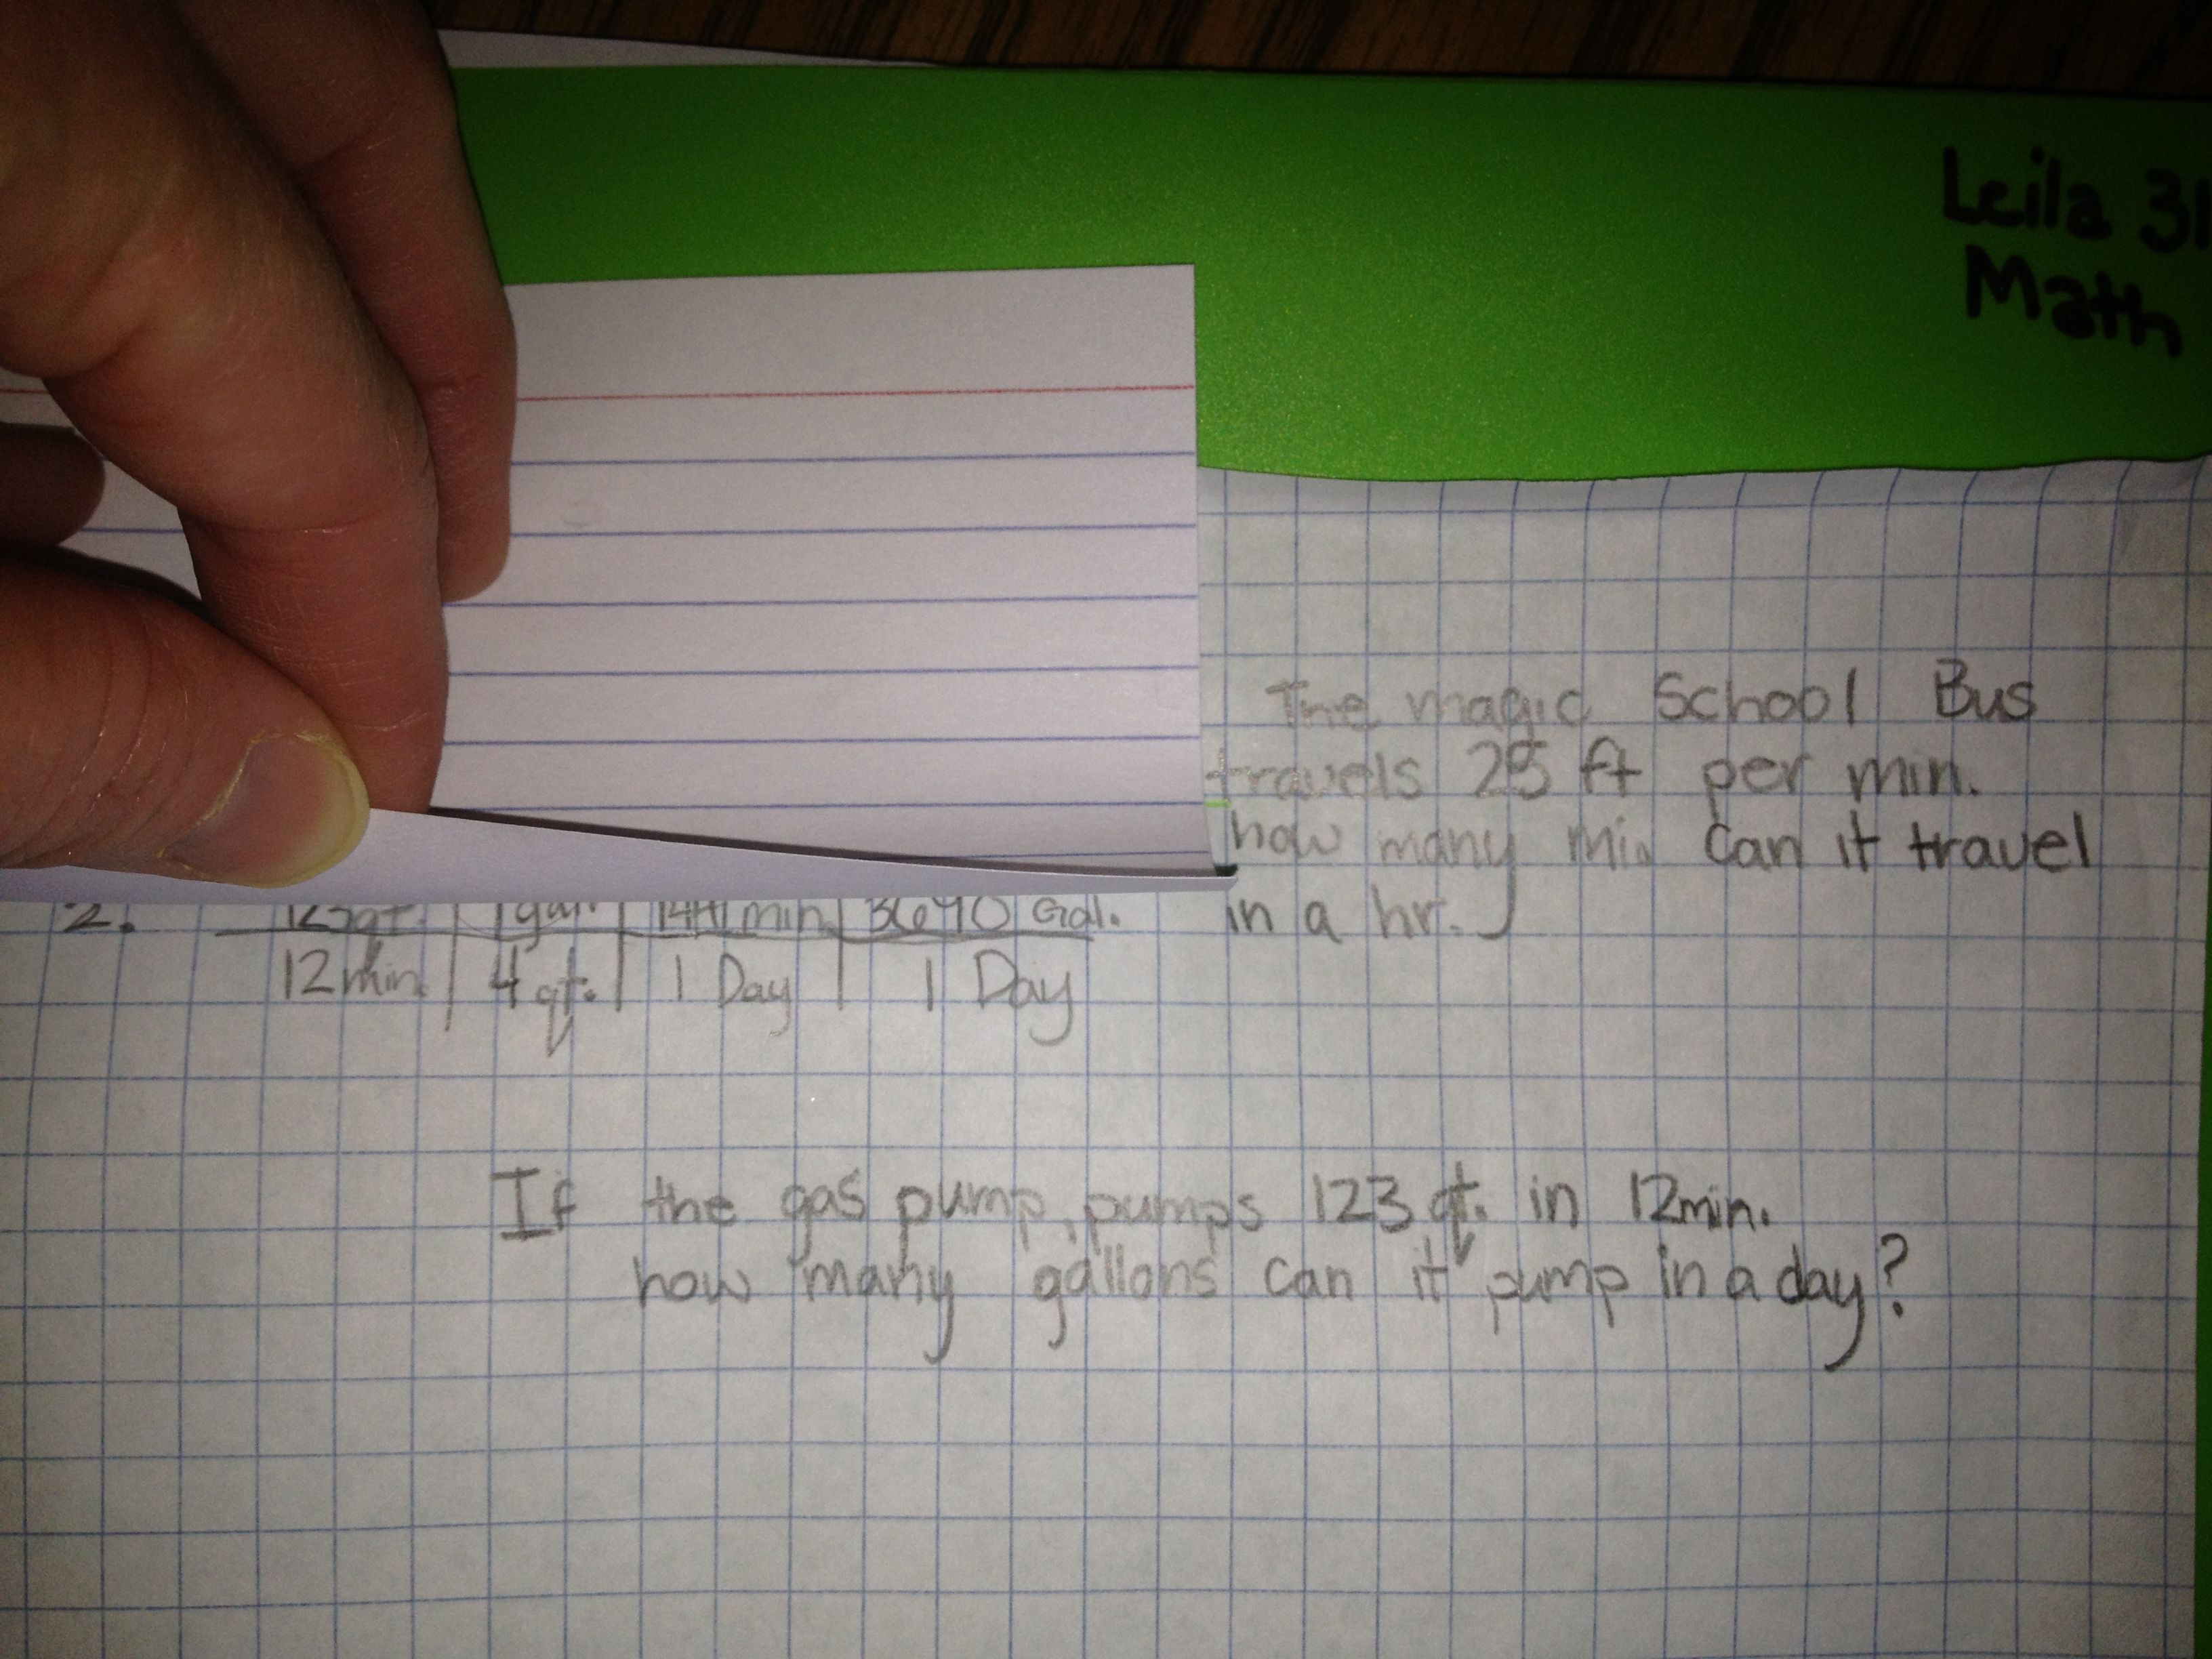 Leila 31
Math
The magic School Bus
travels 25 ft per min.
how many min can it travel
in a hr.
2. 123qt. 1gal. 1440 min. 3690 Gal.
12 min. 4 qt. 1 Day 1 Day
If the gas pump, pumps 123 qt. in 12min.
how many gallons can it pump in a day?